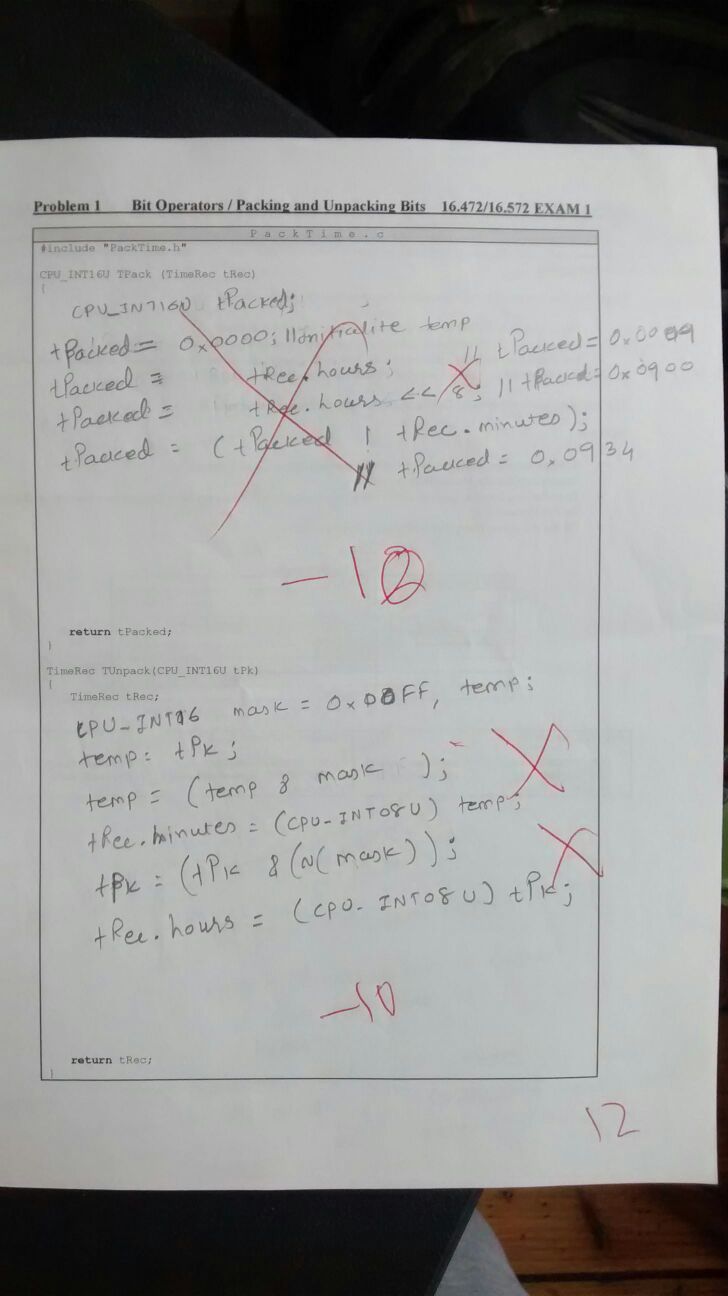 Problem 1 Bit Operators / Packing and Unpacking Bits 16.472/16.572 EXAM 1
PackTime.c
#include "PackTime.h"
CPU_INT16U TPack (TimeRec tRec)
{
CPU_INT16U tPacked;
tPacked = 0x0000; //Initialite temp
tPacked = tRec.hours; // tPacked = 0x0009
tPacked = tRec.hours << 8; // tPacked = 0x0900
tPacked = (tPacked | tRec.minutes);
// tPacked = 0x0934
-12
return tPacked;
}
TimeRec TUnpack(CPU_INT16U tPk)
{
TimeRec tRec;
CPU_INT16 mask = 0x00FF, temp;
temp = tPk;
temp = (temp & mask );
tRec.minutes = (CPU_INT08U) temp;
tPk = (tPk & (~(mask));
tRec.hours = (CPU_INT08U) tPk;
-10
return tRec;
}
12